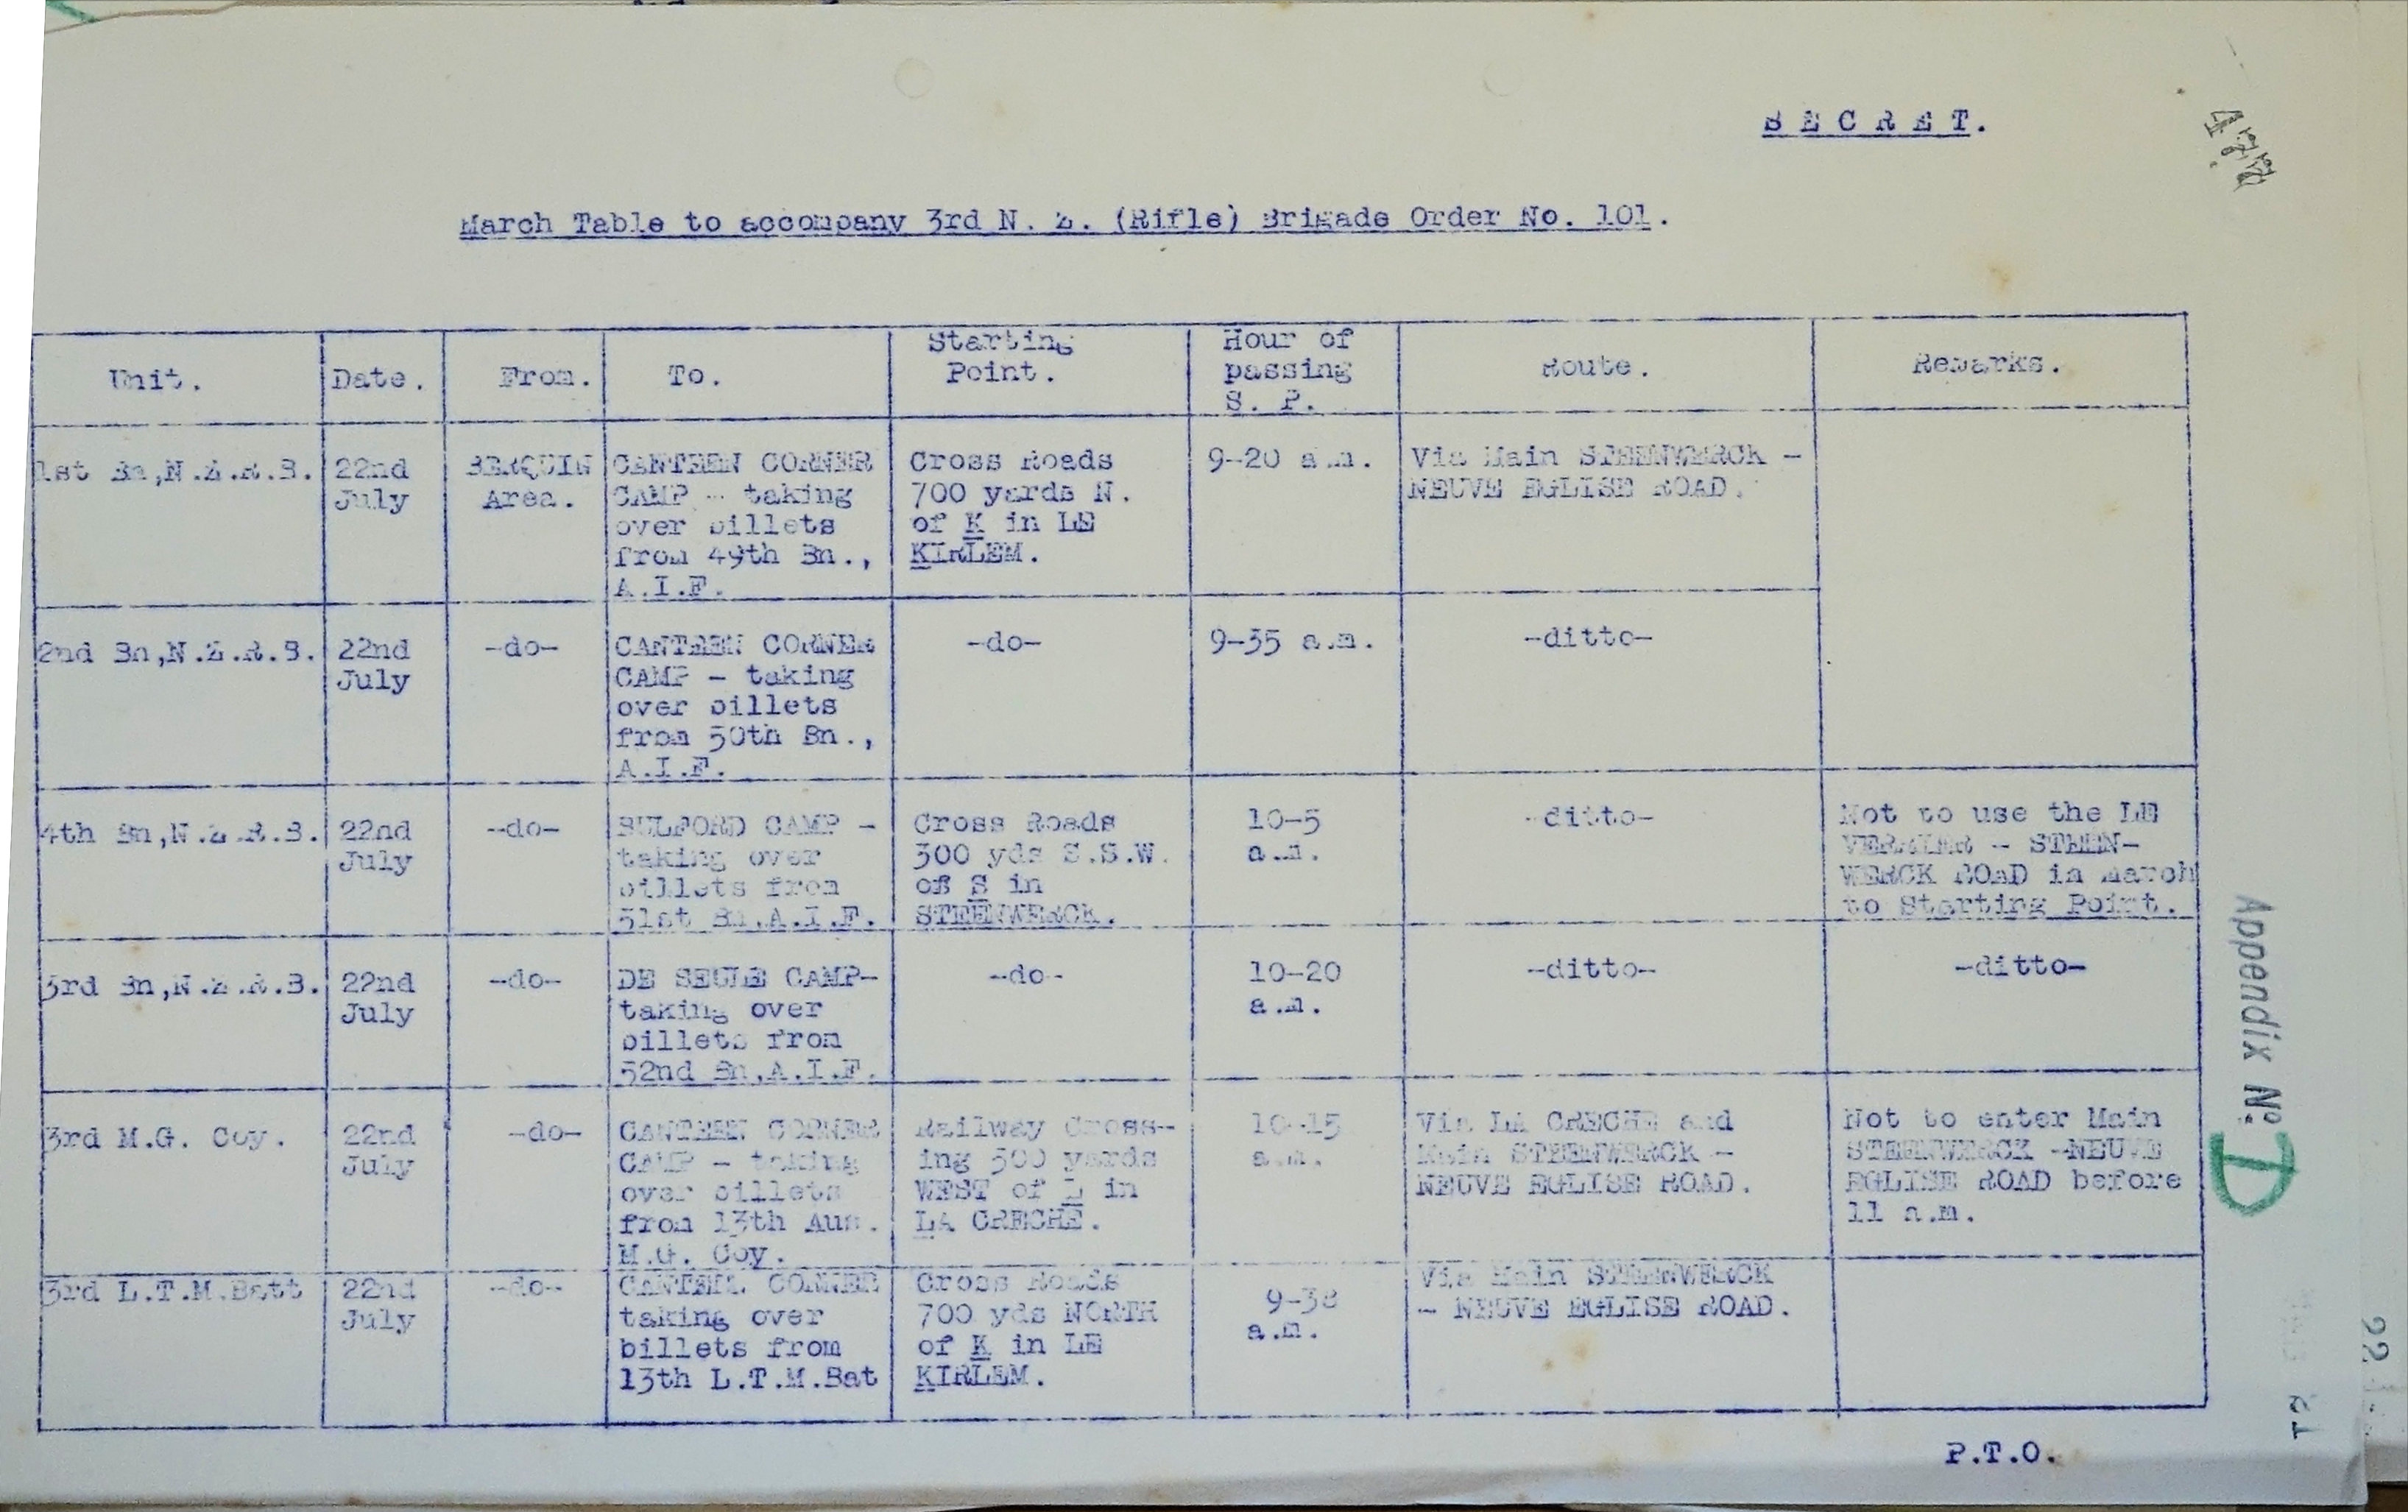 S E C R E T.
March Table to accompany 3rd N. Z. (Rifle) Brigade Order No. 101.
Unit.
Date.
From.
To.
Starting
Point.
Hour of
passing
S. P.
Route.
Remarks.
1st Bn,N.Z.R.B.
22nd
July
BERQUIN
Area.
CANTEEN CORNER
CAMP - taking
over billets
from 49th Bn.,
A.I.F.
Cross Roads
700 yards N.
of K in LE
KIRLEM.
9-20 a.m.
Via Main STEENWERCK -
NEUVE EGLISE ROAD.
2nd Bn,N.Z.R.B.
22nd
July
-do-
CANTEEN CORNER
CAMP - taking
over billets
from 50th Bn.,
A.I.F.
-do-
9-35 a.m.
-ditto-
4th Bn,N.Z.R.B.
22nd
July
-do-
BULFORD CAMP -
taking over
billets from
51st Bn,A.I.F.
Cross Roads
300 yds S.S.W.
of S in
STEENWERCK.
10-5
a.m.
-ditto-
Not to use the LE
VERRIER - STEEN-
WERCK ROAD in march
to Starting Point.
3rd Bn,N.Z.R.B.
22nd
July
-do-
DE SEULE CAMP-
taking over
billets from
52nd Bn,A.I.F.
-do-
10-20
a.m.
-ditto-
-ditto-
3rd M.G. Coy.
22nd
July
-do-
CANTEEN CORNER
CAMP - taking
over billets
from 13th Aus.
M.G. Coy.
Railway Cross-
ing 500 yards
WEST of L in
LA CRECHE.
10-15
a.m.
Via LA CRECHE and
Main STEENWERCK -
NEUVE EGLISE ROAD.
Not to enter Main
STEENWERCK -NEUVE
EGLISE ROAD before
11 a.m.
3rd L.T.M.Batt
22nd
July
-do-
CANTEEN CORNER
taking over
billets from
13th L.T.M.Bat
Cross Roads
700 yds NORTH
of K in LE
KIRLEM.
9-38
a.m.
Via Main STEENWERCK
- NEUVE EGLISE ROAD.
P.T.O.
Appendix No: D
22